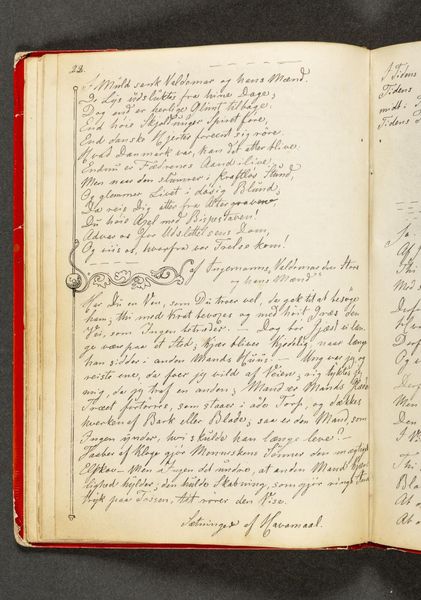 22.
I Muld sank Valdemar og hans Mænd.
De Lys udsluktes fra hine Dage;
Dog end er herlige Glimt tilbage.
End høie Skjoldunger Spiret føre,
End danske Hjerter frit sig røre.
Hvad Danmark var, kan det atter blive.
Endnu er Fædrenes Aand ilive;
Men naar den slumrer i kraftløs Stund,
Og glemmer Livet i dødig Blund,
Da reis Dig atter fra Altergraven,
Du høie Axel med Bispestaven!
Advar os for Udslettelsens Dom,
Og viis os, hvorfra vor Frelse kom!
af Ingemanns, Valdemar den Store
og hans Mænd"
Har Du en Ven, som Du troer vel, da gak tit at besøge
ham; thi med Krat bevoxes og med høit Græs den
Vei, som Ingen betræder. — Dog bør Gjæst ei længe
være paa et Sted; kjær bliver kjedelig, naar længe
han sidder i anden Mands Huus. — Ung var jeg og
reiste ene, da foer jeg vild af Veien; rig tyktes jeg
mig, da jeg traf en anden; Mand er Mands Glæde.
Træet fortørres, som staaer i øde Torp, og dækkes
hverken af Bark eller Blade; saa er den Mand, som
Ingen ynder, hvi skulde han længe leve? —
Taaber af kloge gjør Menneskens Sønner den mægtige
Elskov — Men at Ingen det undre, at anden Mand
hylder; den hulde Skabning, som gjør
paa Tossen, tidt rører den Vise.
Sætninger af Havamaal.